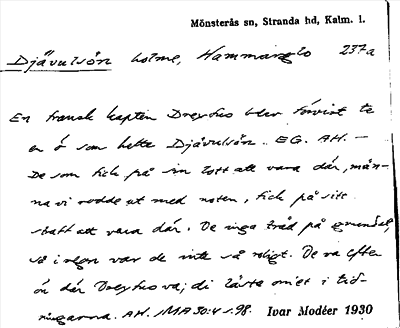 Mönsterås sn, Stranda hd, Kalm. l.
Djävulsön holme, Hammarglo 237a
En fransk kapten Dreyfus blev förvist te
en ö som hette Djävulsön. EG. AH. —
De som fick på sin lott att vara där, män-
na vi rodde ut med noten, fick på sitt
statt att vara där. De inga träd på
så i regn var de inte så roligt. De va efter
ön där Dreyfus va; di läste om et i tid-
ningarna. AH. MA 30:4 s. 98. Ivar Modéer 1930